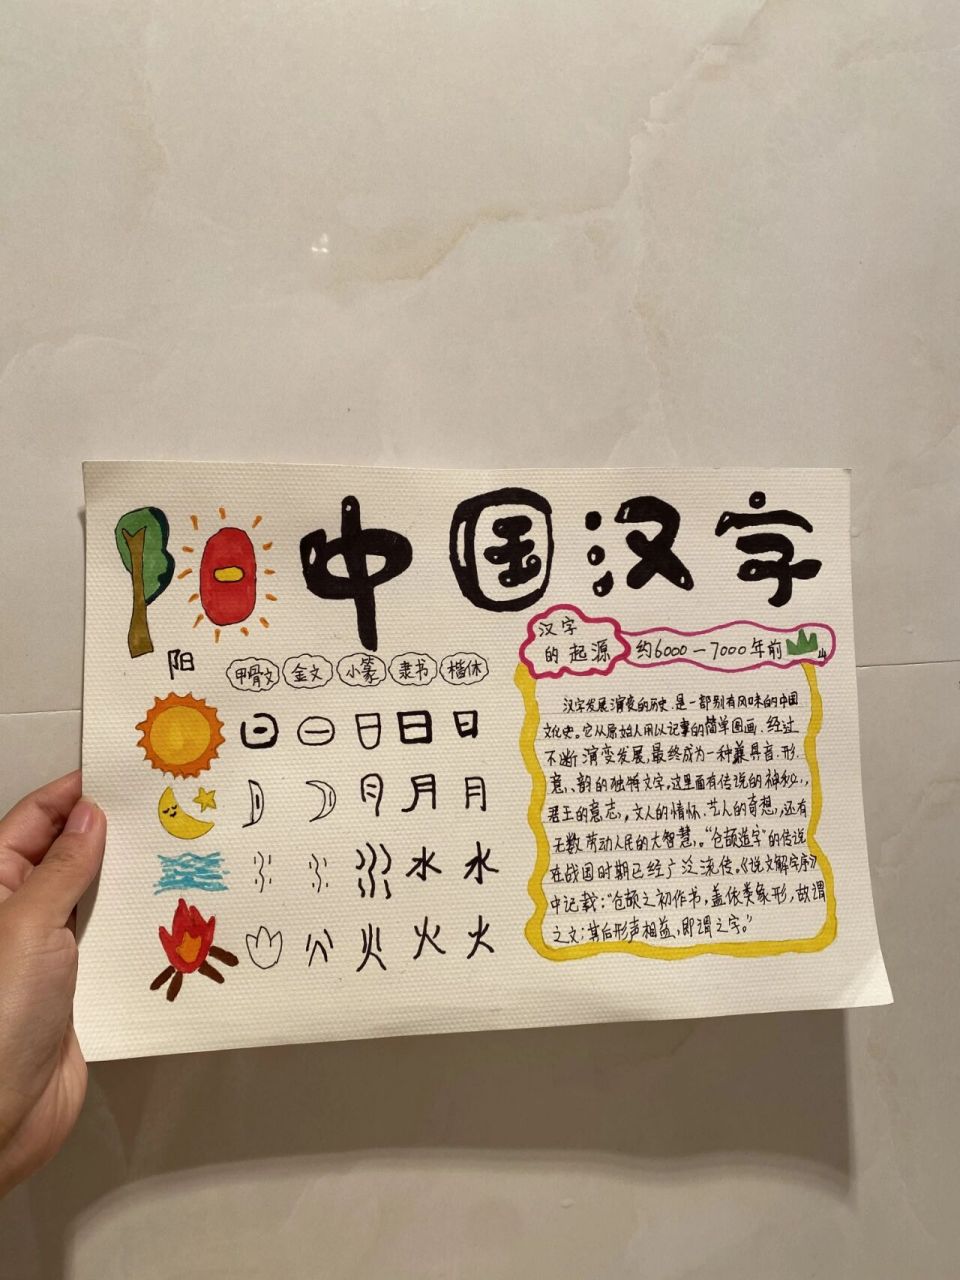 中国汉字
阳
甲骨文 金文 小篆 隶书 楷体
日 日 日 日 日
月 月 月 月 月
水 水 水 水 水
火 火 火 火 火
汉字
的起源
约6000—7000年前
山
汉字发展演变的历史是一部别有风味的中国
文化史。它从原始人用以记事的简单图画,经过
不断演变发展,最终成为一种兼具音、形、
意、韵的独特文字。这里面有传说的神秘,
君王的意志,文人的情怀、艺人的奇想,还有
无数劳动人民的大智慧。“仓颉造字”的传说
在战国时期已经广泛流传。《说文解字序》
中记载:“仓颉之初作书,盖依类象形,故谓
之文;其后形声相益,即谓之字。”